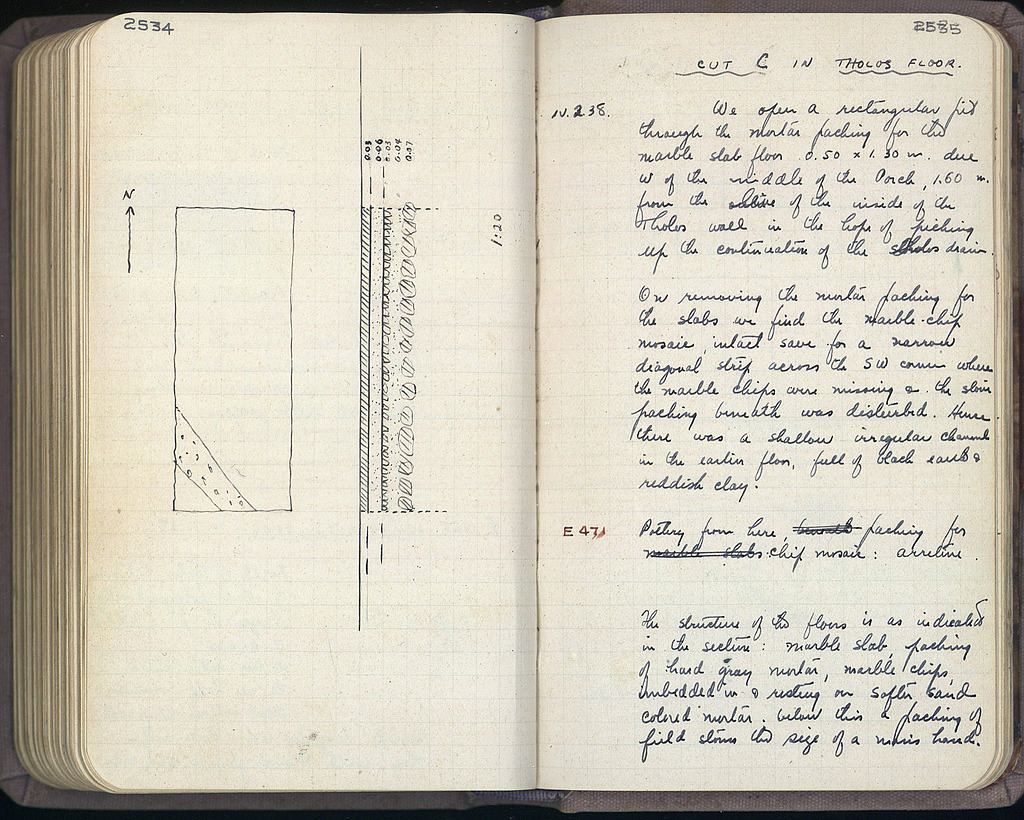 2534
N
0.03
0.06
0.03
0.04
0.07
1:20
2535
CUT C IN THOLOS FLOOR.
IV.2.38. We open a rectangular pit
through the mortar packing for the
marble slab floor 0.50 x 1.30 m. due
W of the middle of the Porch, 1.60 m.
from the of the inside of the
Tholos wall in the hope of picking
up the continuation of the drain.
On removing the mortar packing for
the slabs we find the marble-chip
mosaic, intact save for a narrow
diagonal strip across the SW corner where
the marble chips were missing & the stone
packing beneath was disturbed. Hence
there was a shallow irregular channel
in the earlier floor, full of black earth &
reddish clay.
E 47 Pottery from here, beneath packing for
marble slabs chip mosaic: arretine.
The structure of the floors is as indicated
in the section: marble slab, packing
of hard gray mortar, marble chips,
imbedded in & resting on softer sand
colored mortar. below this a packing of
field stones the size of a man's hand.